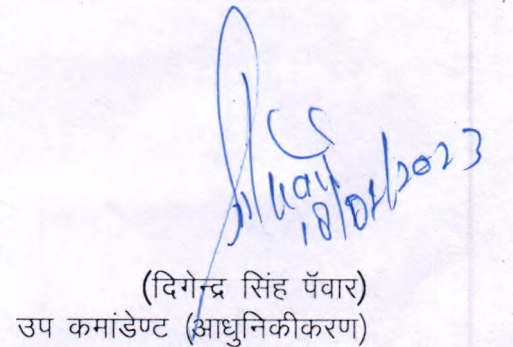 18/04/2023
(दिगेन्द्र सिंह पॅवार)
उप कमांडेण्ट (आधुनिकीकरण)